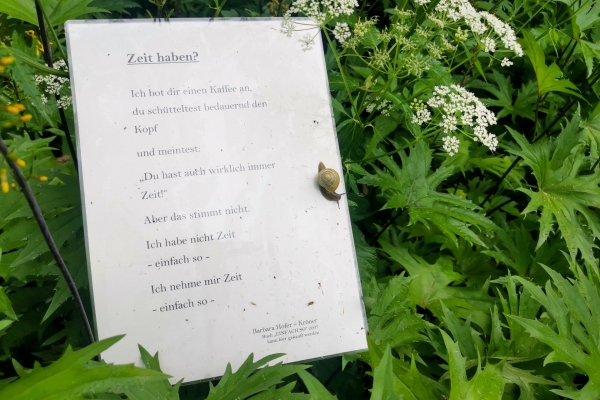 Zeit haben?
Ich bot dir einen Kaffee an,
du schütteltest bedauernd den
Kopf
und meintest:
„Du hast auch wirklich immer
Zeit!“
Aber das stimmt nicht.
Ich habe nicht Zeit
- einfach so -
Ich nehme mir Zeit
- einfach so -
Barbara
Buch „EINFACH SO“ 2017
kann hier gekauft werden